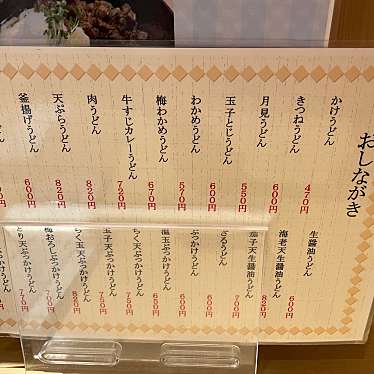 おしながき
かけうどん 470円
きつねうどん 600円
月見うどん 550円
玉子とじうどん 600円
わかめうどん 570円
梅わかめうどん 670円
牛すじカレーうどん 720円
肉うどん 820円
天ぷらうどん 820円
釜揚げうどん 600円
うどん
生醤油うどん 600円
海老天生醤油うどん 820円
茄子天生醤油うどん
ざるうどん 600円
ぶっかけうどん 600円
温玉ぶっかけうどん 650円
ちく天ぶっかけうどん 750円
玉子天ぶっかけうどん 750円
ちく玉天ぶっかけうどん 820円
梅おろしぶっかけうどん 750円
とり天ぶっかけうどん
ぶっかけうどん